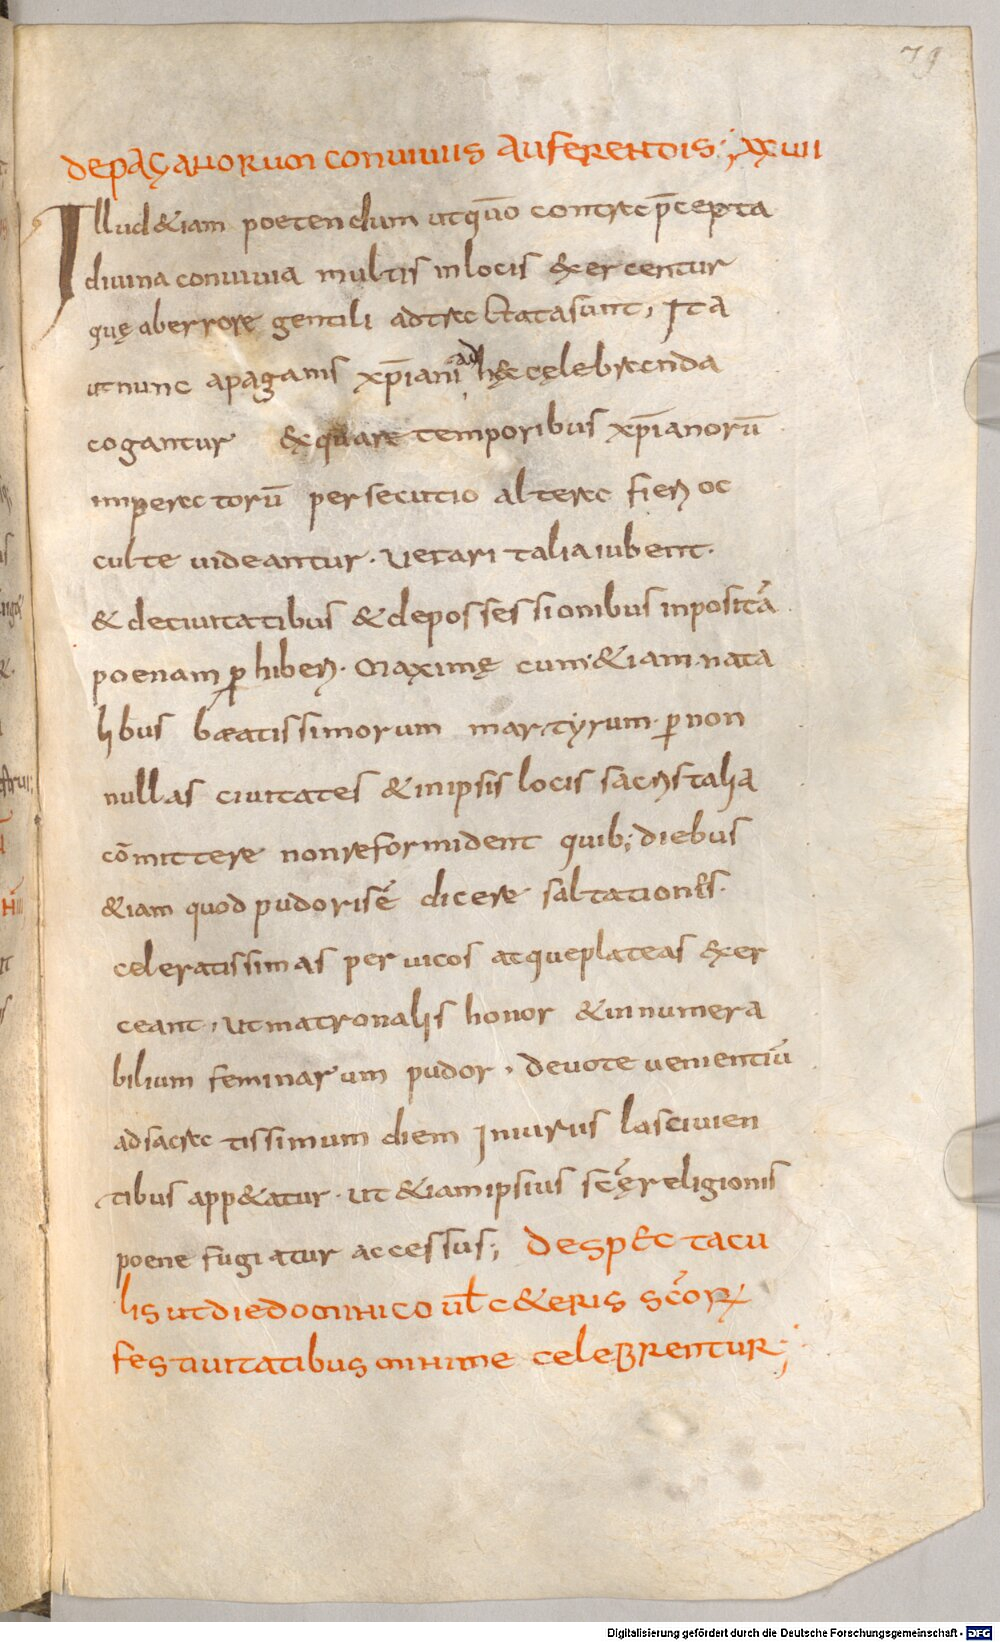 79
depaganorum conuiuiis auferendis; xxvii
Illud &iam poetendum utquō contra p̄cepta
diuina conuiuia multis inlocis exercentur
quę aberrore gentili adtractatasunt, Ita
utnunc apaganis xp̄iani adhęc cęlebranda
cogantur &quare temporibus xp̄ianorū
imperatorū persecutio altera fieri oc
culte uideantur. Uetari taliaiubent.
& deciuitatibus &depossessionibus inpositā
poenam ꝓhiberi. Maximę cum &iam nata
libus beatissimorum martyrum. ꝑ non
nullas ciuitates &inipsis locis sacris talia
cōmittere nonreformident quib; diebus
&iam quod pudorisē dicere saltationes.
celeratissimas per uicos atqueplateas exer
ceant, utmatronalis honor &innumera
bilium feminarum pudor, deuote uenientiū
adsacratissimum diem Iniuriis lasciuien
tibus app&atur. ut &iamipsius scēreligionis
poene fugiatur accessus; despectacu
lis utdiedominico ul̄ c&eris scōrꝝ
festiuitatibus minime celebrentur;
Digitalisierung gefördert durch die Deutsche Forschungsgemeinschaft - DFG